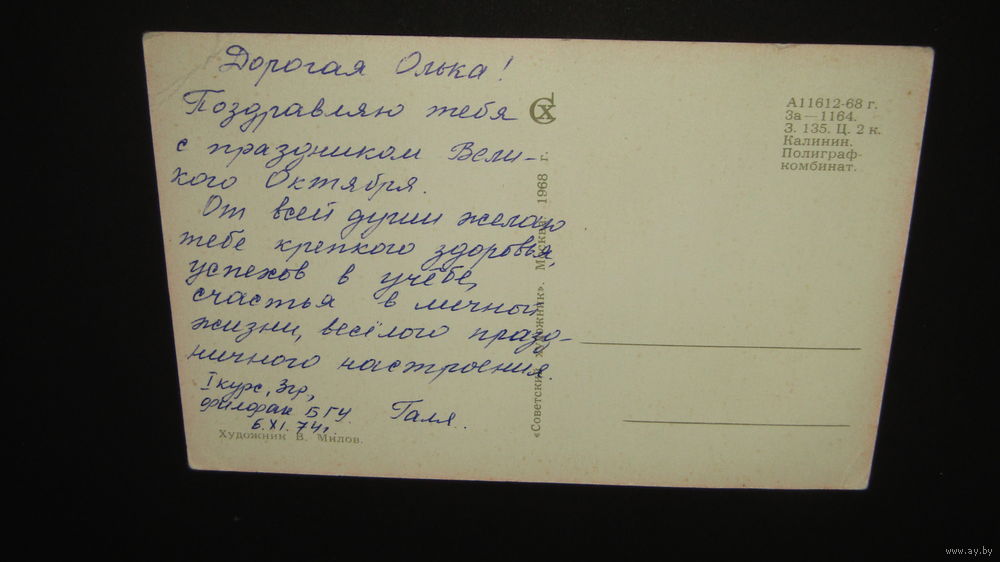 Дорогая Олька!
Поздравляю тебя
с праздником Вели-
кого Октября.
От всей души желаю
тебе крепкого здоровья,
успехов в учёбе,
счастья в личной
жизни, весёлого празд-
ничного настроения.
I курс, 3гр,
филфак БГУ
6.XI.74г.
Галя.
Художник В. Милов.
«Советский художник». Москва. 1968 г.
СХ
А11612-68 г.
За—1164.
З. 135. Ц. 2 к.
Калинин.
Полиграф-
комбинат.
www.ay.by